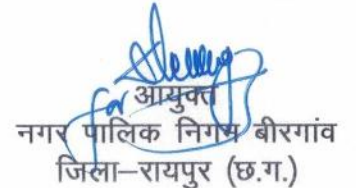 for
आयुक्त
नगर पालिक निगम बीरगांव
जिला–रायपुर (छ.ग.)